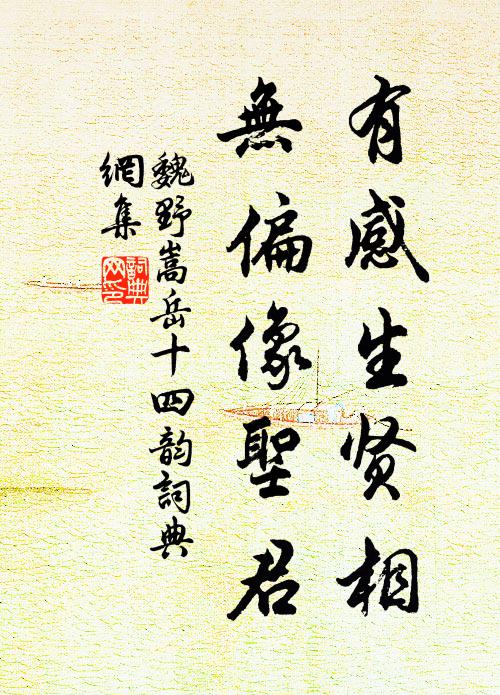 有感生贤相
無偏像聖君
魏野嵩岳十四韵詞典
網集
詞典
网印